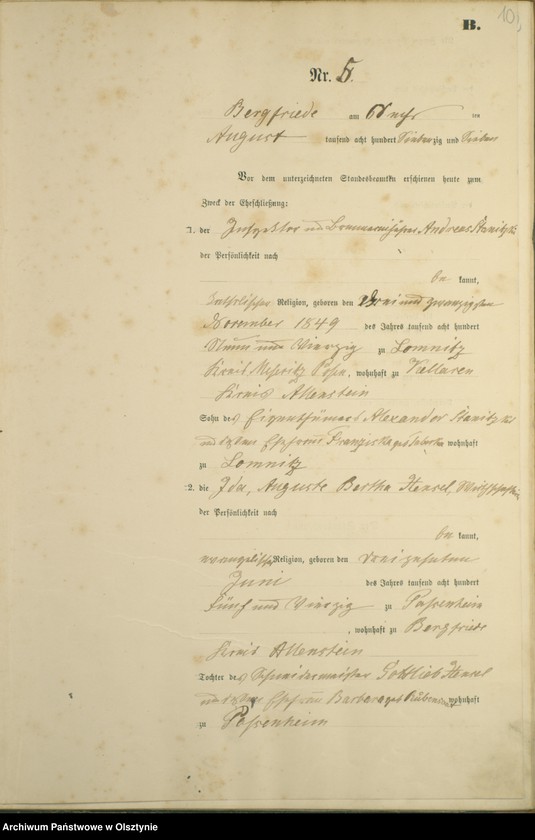 B.
10
Nr. 5.
Bergfriede am
August tausend acht hundert Siebenzig und Sieben
Vor dem unterzeichneten Standesbeamten erschienen heute zum
Zweck der Eheschließung:
1. der Inspektor und Andreas
der Persönlichkeit nach
be kannt,
katholischer Religion, geboren den drei und zwanzigsten
November 1849 des Jahres tausend acht hundert
Neun und Vierzig zu Lomnitz
Kreis Meseritz Posen, wohnhaft zu
Kreis Allenstein
Sohn des Eigenthümers Alexander
und dessen Ehefrau Franziska geb wohnhaft
zu Lomnitz
2. die Ida, Auguste Bertha Hensel,
der Persönlichkeit nach
be kannt,
evangelischer Religion, geboren den dreizehnten
Juni des Jahres tausend acht hundert
Fünf und Vierzig zu Passenheim
, wohnhaft zu Bergfriede
Kreis Allenstein
Tochter des Schneidermeister Gottlieb Hensel
und dessen Ehefrau Barbara geb wohnhaft
zu Passenheim
Archiwum Państwowe w Olsztynie